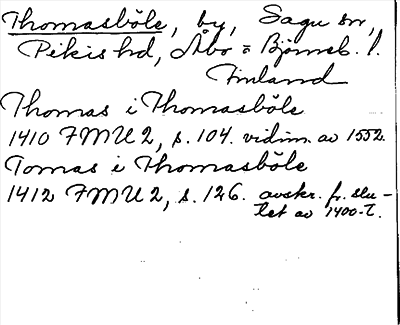 Thomasböle, by, Sagu sn,
Pikis hd, Åbo = Björneb. l.
Finland
Thomas i Thomasböle
1410 FMU 2, s. 104. vidim. av 1552.
Tomas i Thomasböle
1412 FMU 2, s. 126. avskr. fr. slu-
tet av 1400-t.